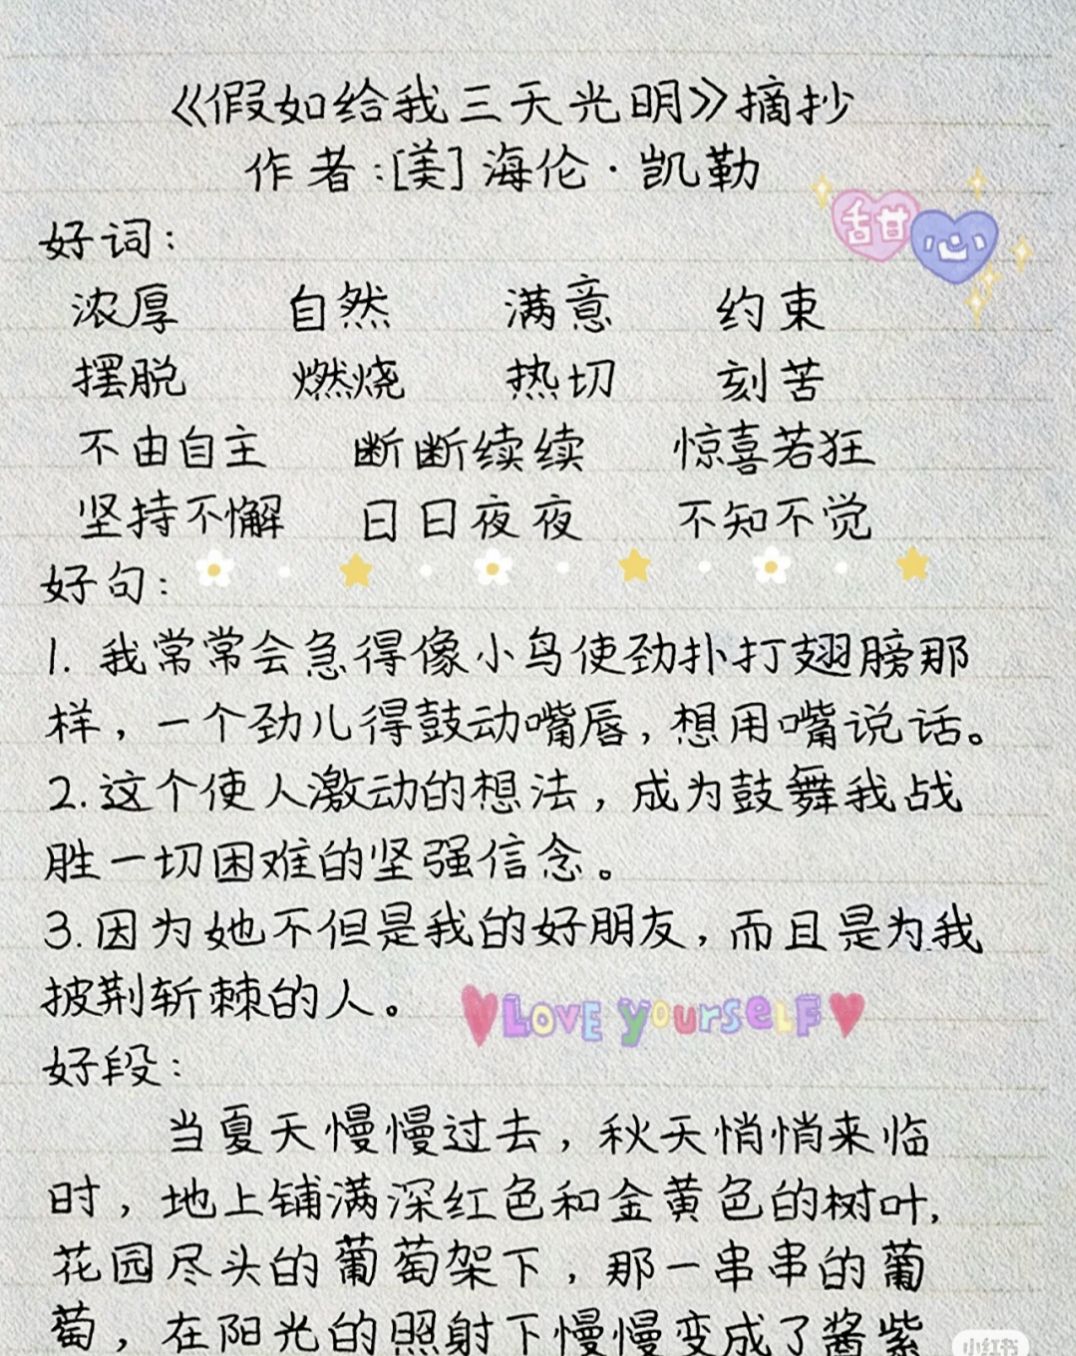 《假如给我三天光明》摘抄
作者:[美]海伦·凯勒
甜心
好词:
浓厚 自然 满意 约束
摆脱 燃烧 热切 刻苦
不由自主 断断续续 惊喜若狂
坚持不懈 日日夜夜 不知不觉
好句:
1. 我常常会急得像小鸟使劲扑打翅膀那
样，一个劲儿得鼓动嘴唇，想用嘴说话。
2.这个使人激动的想法，成为鼓舞我战
胜一切困难的坚强信念。
3.因为她不但是我的好朋友，而且是为我
披荆斩棘的人。
LOVE yourself
好段:
当夏天慢慢过去，秋天悄悄来临
时，地上铺满深红色和金黄色的树叶,
花园尽头的葡萄架下，那一串串的葡
萄，在阳光的照射下慢慢变成了酱紫
小红书